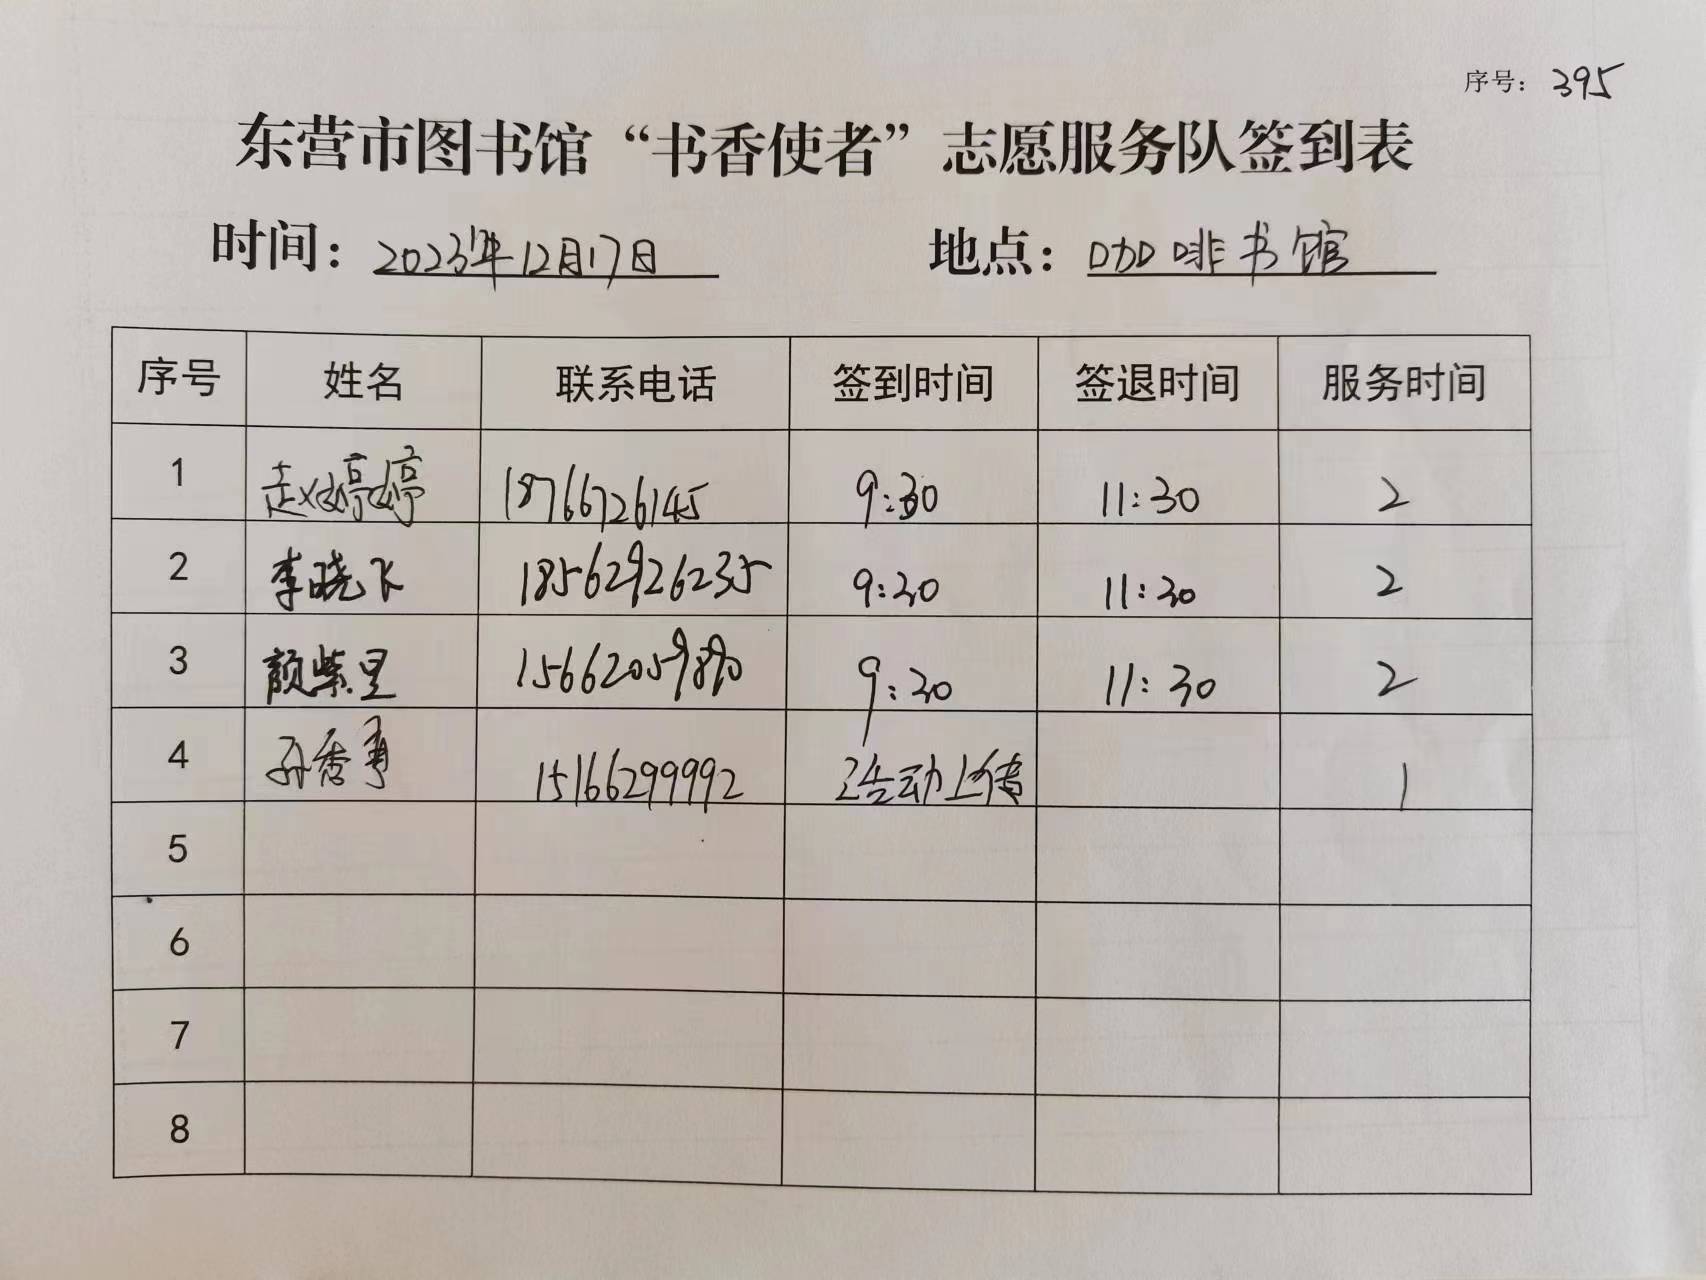 序号：395
东营市图书馆“书香使者”志愿服务队签到表
时间：2023年12月17日 地点：咖啡书馆
序号 姓名 联系电话 签到时间 签退时间 服务时间
1 赵婷婷 18766726145 9:30 11:30 2
2 李晓飞 18562926235 9:30 11:30 2
3 颜紫星 15662059890 9:30 11:30 2
4 孙秀 15166299992 活动上传 1
5
6
7
8